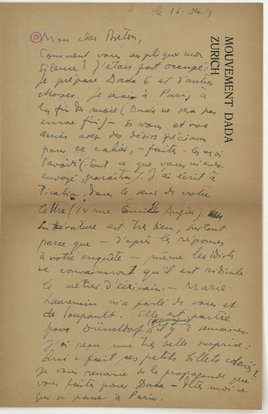 Mon cher Breton,
Comment vous expliquer mon
silence ? J'étais fort occupé :
je prépare Dada 6 et d'autres
choses. Je serai à Paris à
la fin du mois (Dada ne sera pas
encore fini) - Si vous et vos
amis avez des désirs spéciaux
pour ce cahier, - faites-le moi
savoir (Tout ce que vous m'avez
envoyé paraîtra) J'ai écrit à
Picabia, dans le sens de votre
lettre (14 rue Émile Augier).
Littérature est très bien, surtout
parce que - d'après les réponses
à votre enquête - même les idiots
se convaincront qu'il est ridicule
le métier d'écrivain. - Marie
m'a parlé de vous et
de Soupault. Elle est partie
pour Düsseldorf il y a 2 semaines.
J'ai reçu une très belle surprise :
qui a fait ces petits billets coloriés ?
Je vous remercie de la propagande que
vous faites pour Dada - Dites-moi ce
qui se passe à Paris.
MOUVEMENT DADA
ZURICH